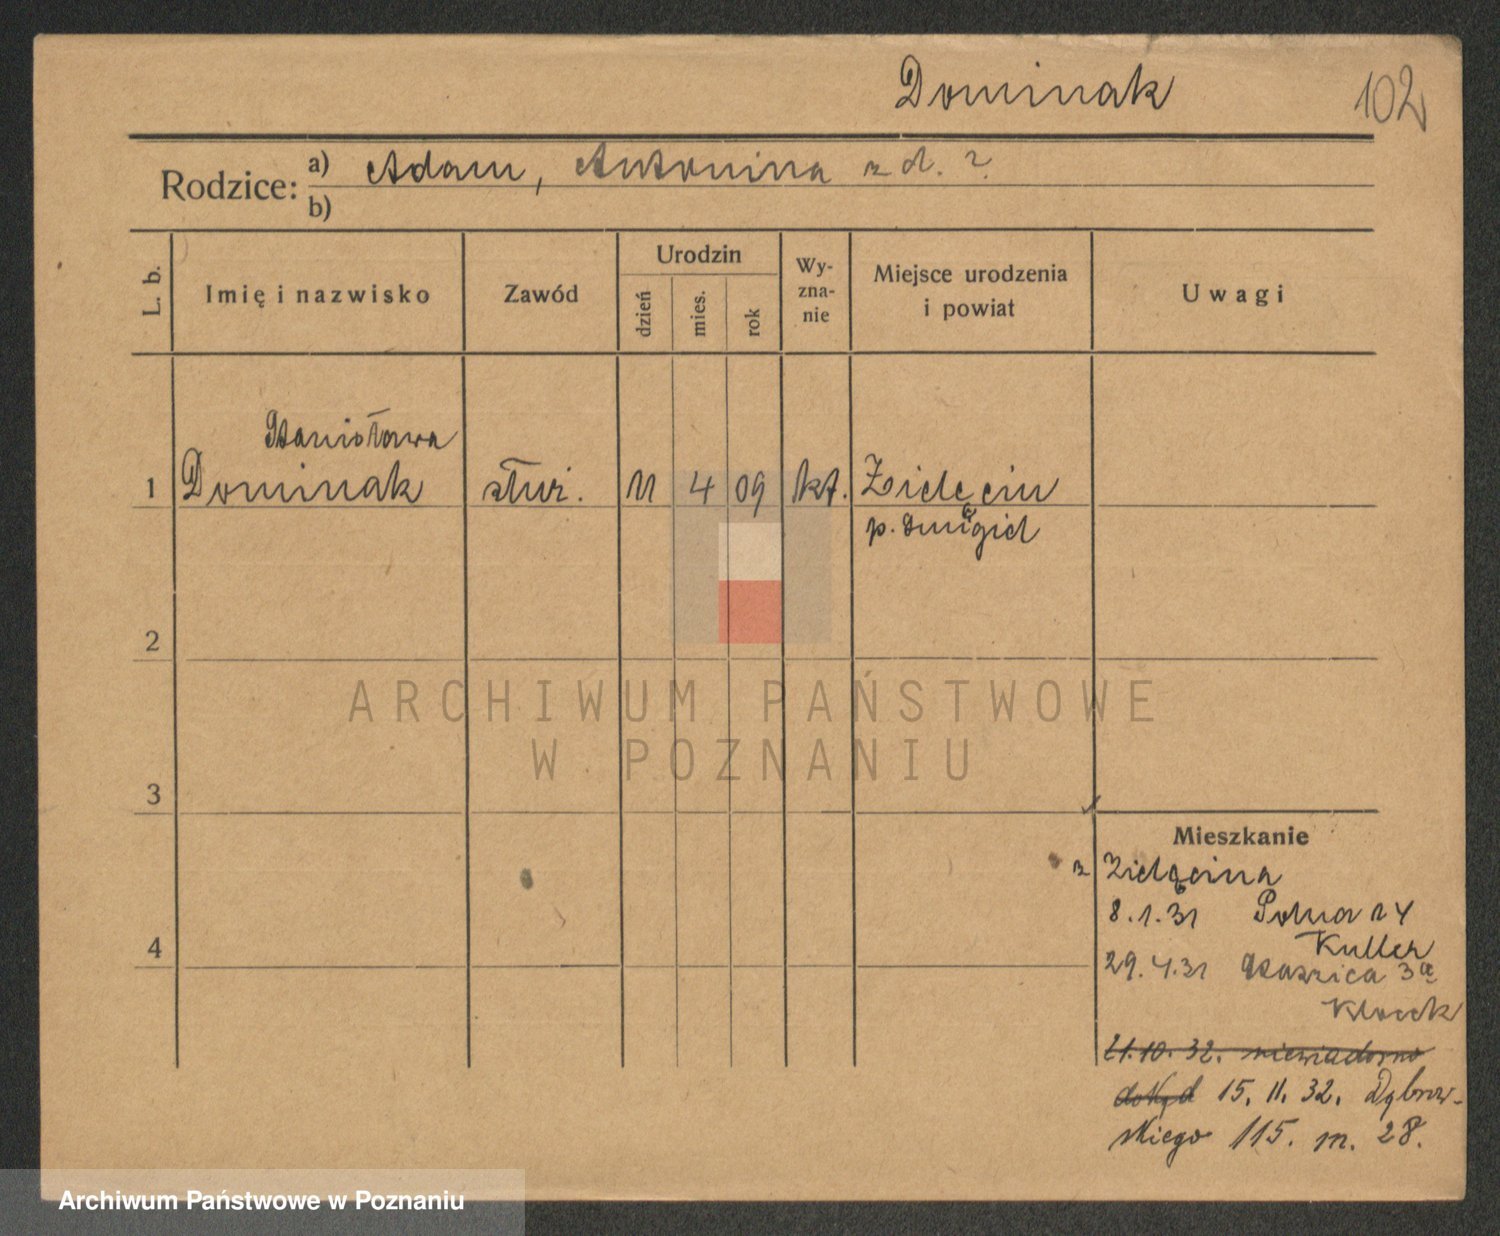 Dominak
102
Rodzice: a) Adam, Antonina z d. ?
b)
L. b.
Imię i nazwisko
Zawód
Urodzin
dzień
mies.
rok
Wy-
zna-
nie
Miejsce urodzenia
i powiat
Uwagi
Stanisława
1 Dominak służ. 11 4 09 kt. Zielęcin
p. Śmigiel
2
ARCHIWUM PAŃSTWOWE
W POZNANIU
3
4
Mieszkanie
z Zielęcina
8.1.31 Polna 24
Kuller
29.4.31 3a
Klocek
21.10.32. niewiadomo
dokąd 15. 11. 32. Dąbrow-
skiego 115. m. 28.
Archiwum Państwowe w Poznaniu